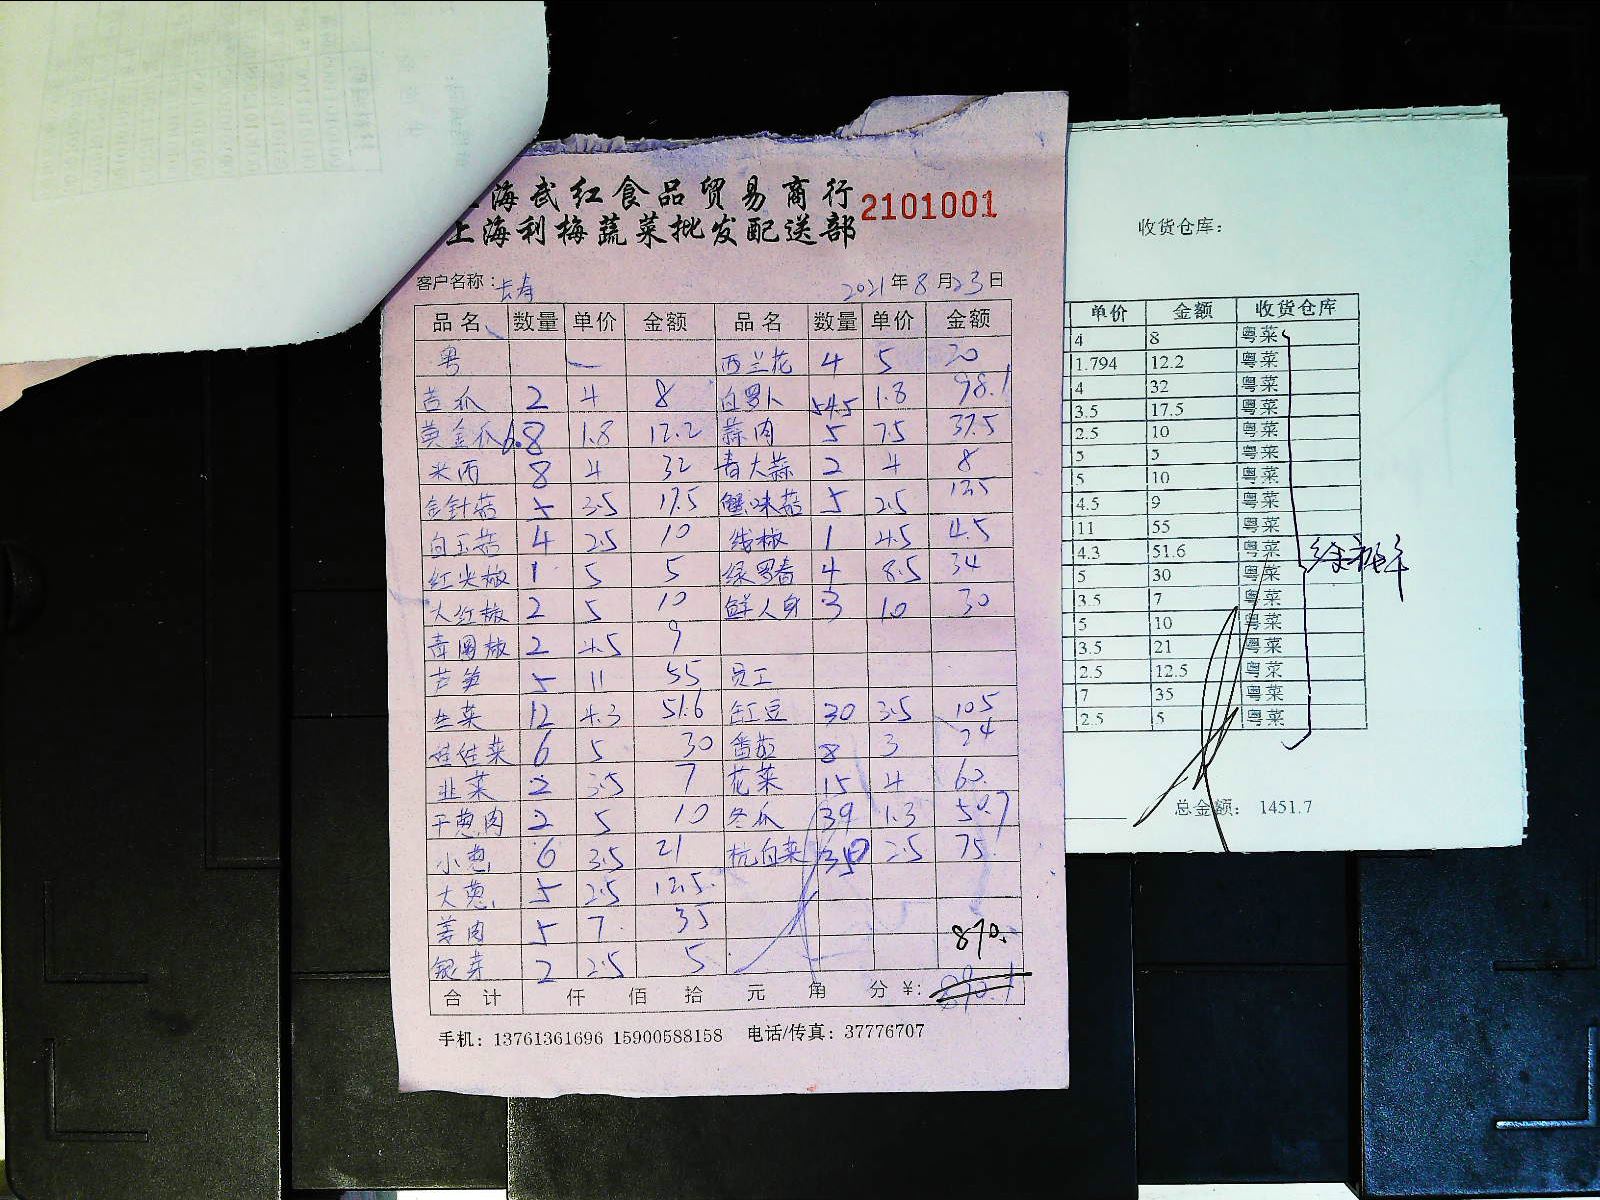 海武红食品贸易商行
上海利梅蔬菜批发配送部
2101001
客户名称：长寿 2021年8月23日
品名 数量 单价 金额 品名 数量 单价 金额
粤 西兰花 4 5 20
苦瓜 2 4 8 白罗卜 54.5 1.8 98.1
黄金瓜 6.8 1.8 12.2 蒜肉 5 7.5 37.5
米西 8 4 32 青大蒜 2 4 8
金针菇 5 3.5 17.5 蟹味菇 5 2.5 12.5
白玉菇 4 2.5 10 线椒 1 4.5 4.5
红尖椒 1 5 5 绿罗春 4 8.5 34
大红椒 2 5 10 鲜人身 3 10 30
青圆椒 2 4.5 9
芦笋 5 11 55 员工
生菜 12 4.3 51.6 缸豆 30 3.5 105
娃娃菜 6 5 30 番茄 8 3 24
韭菜 2 3.5 7 花菜 15 4 60.
干葱肉 2 5 10 冬瓜 39 1.3 50.7
小葱 6 3.5 21 杭白菜 30 2.5 75.
大葱 5 2.5 12.5.
姜肉 5 7. 35
银芽 2 2.5 5 870.
合计 仟 佰 拾 元 角 分 ¥: 890.1
手机：13761361696 15900588158 电话/传真：37776707
收货仓库：
单价 金额 收货仓库
4 8 粤菜
1.794 12.2 粤菜
4 32 粤菜
3.5 17.5 粤菜
2.5 10 粤菜
5 5 粤菜
5 10 粤菜
4.5 9 粤菜
11 55 粤菜
4.3 51.6 粤菜
5 30 粤菜
3.5 7 粤菜
5 10 粤菜
3.5 21 粤菜
2.5 12.5 粤菜
7 35 粤菜
2.5 5 粤菜
总金额： 1451.7